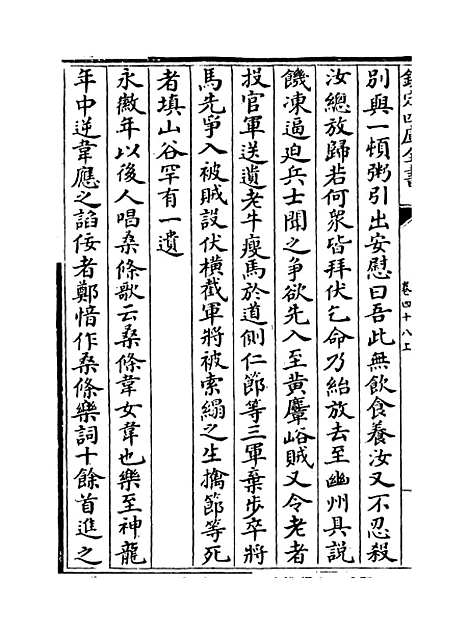 欽定四庫全書
卷四十八上
別與一頓粥引出安慰曰吾此無飲食養汝又不忍殺
汝總放歸若何衆皆拜伏乞命乃紿放去至幽州具說
饑凍逼迫兵士聞之爭欲先入至黄麞峪賊又令老者
投官軍送遺老牛瘦馬於道側仁節等三軍棄步卒將
馬先爭入被賊設伏橫截軍將被索縋之生擒節等死
者填山谷罕有一遺
永徽年以後人唱桑條歌云桑條韋女韋也樂至神龍
年中逆韋應之諂佞者鄭愔作桑條樂詞十餘首進之